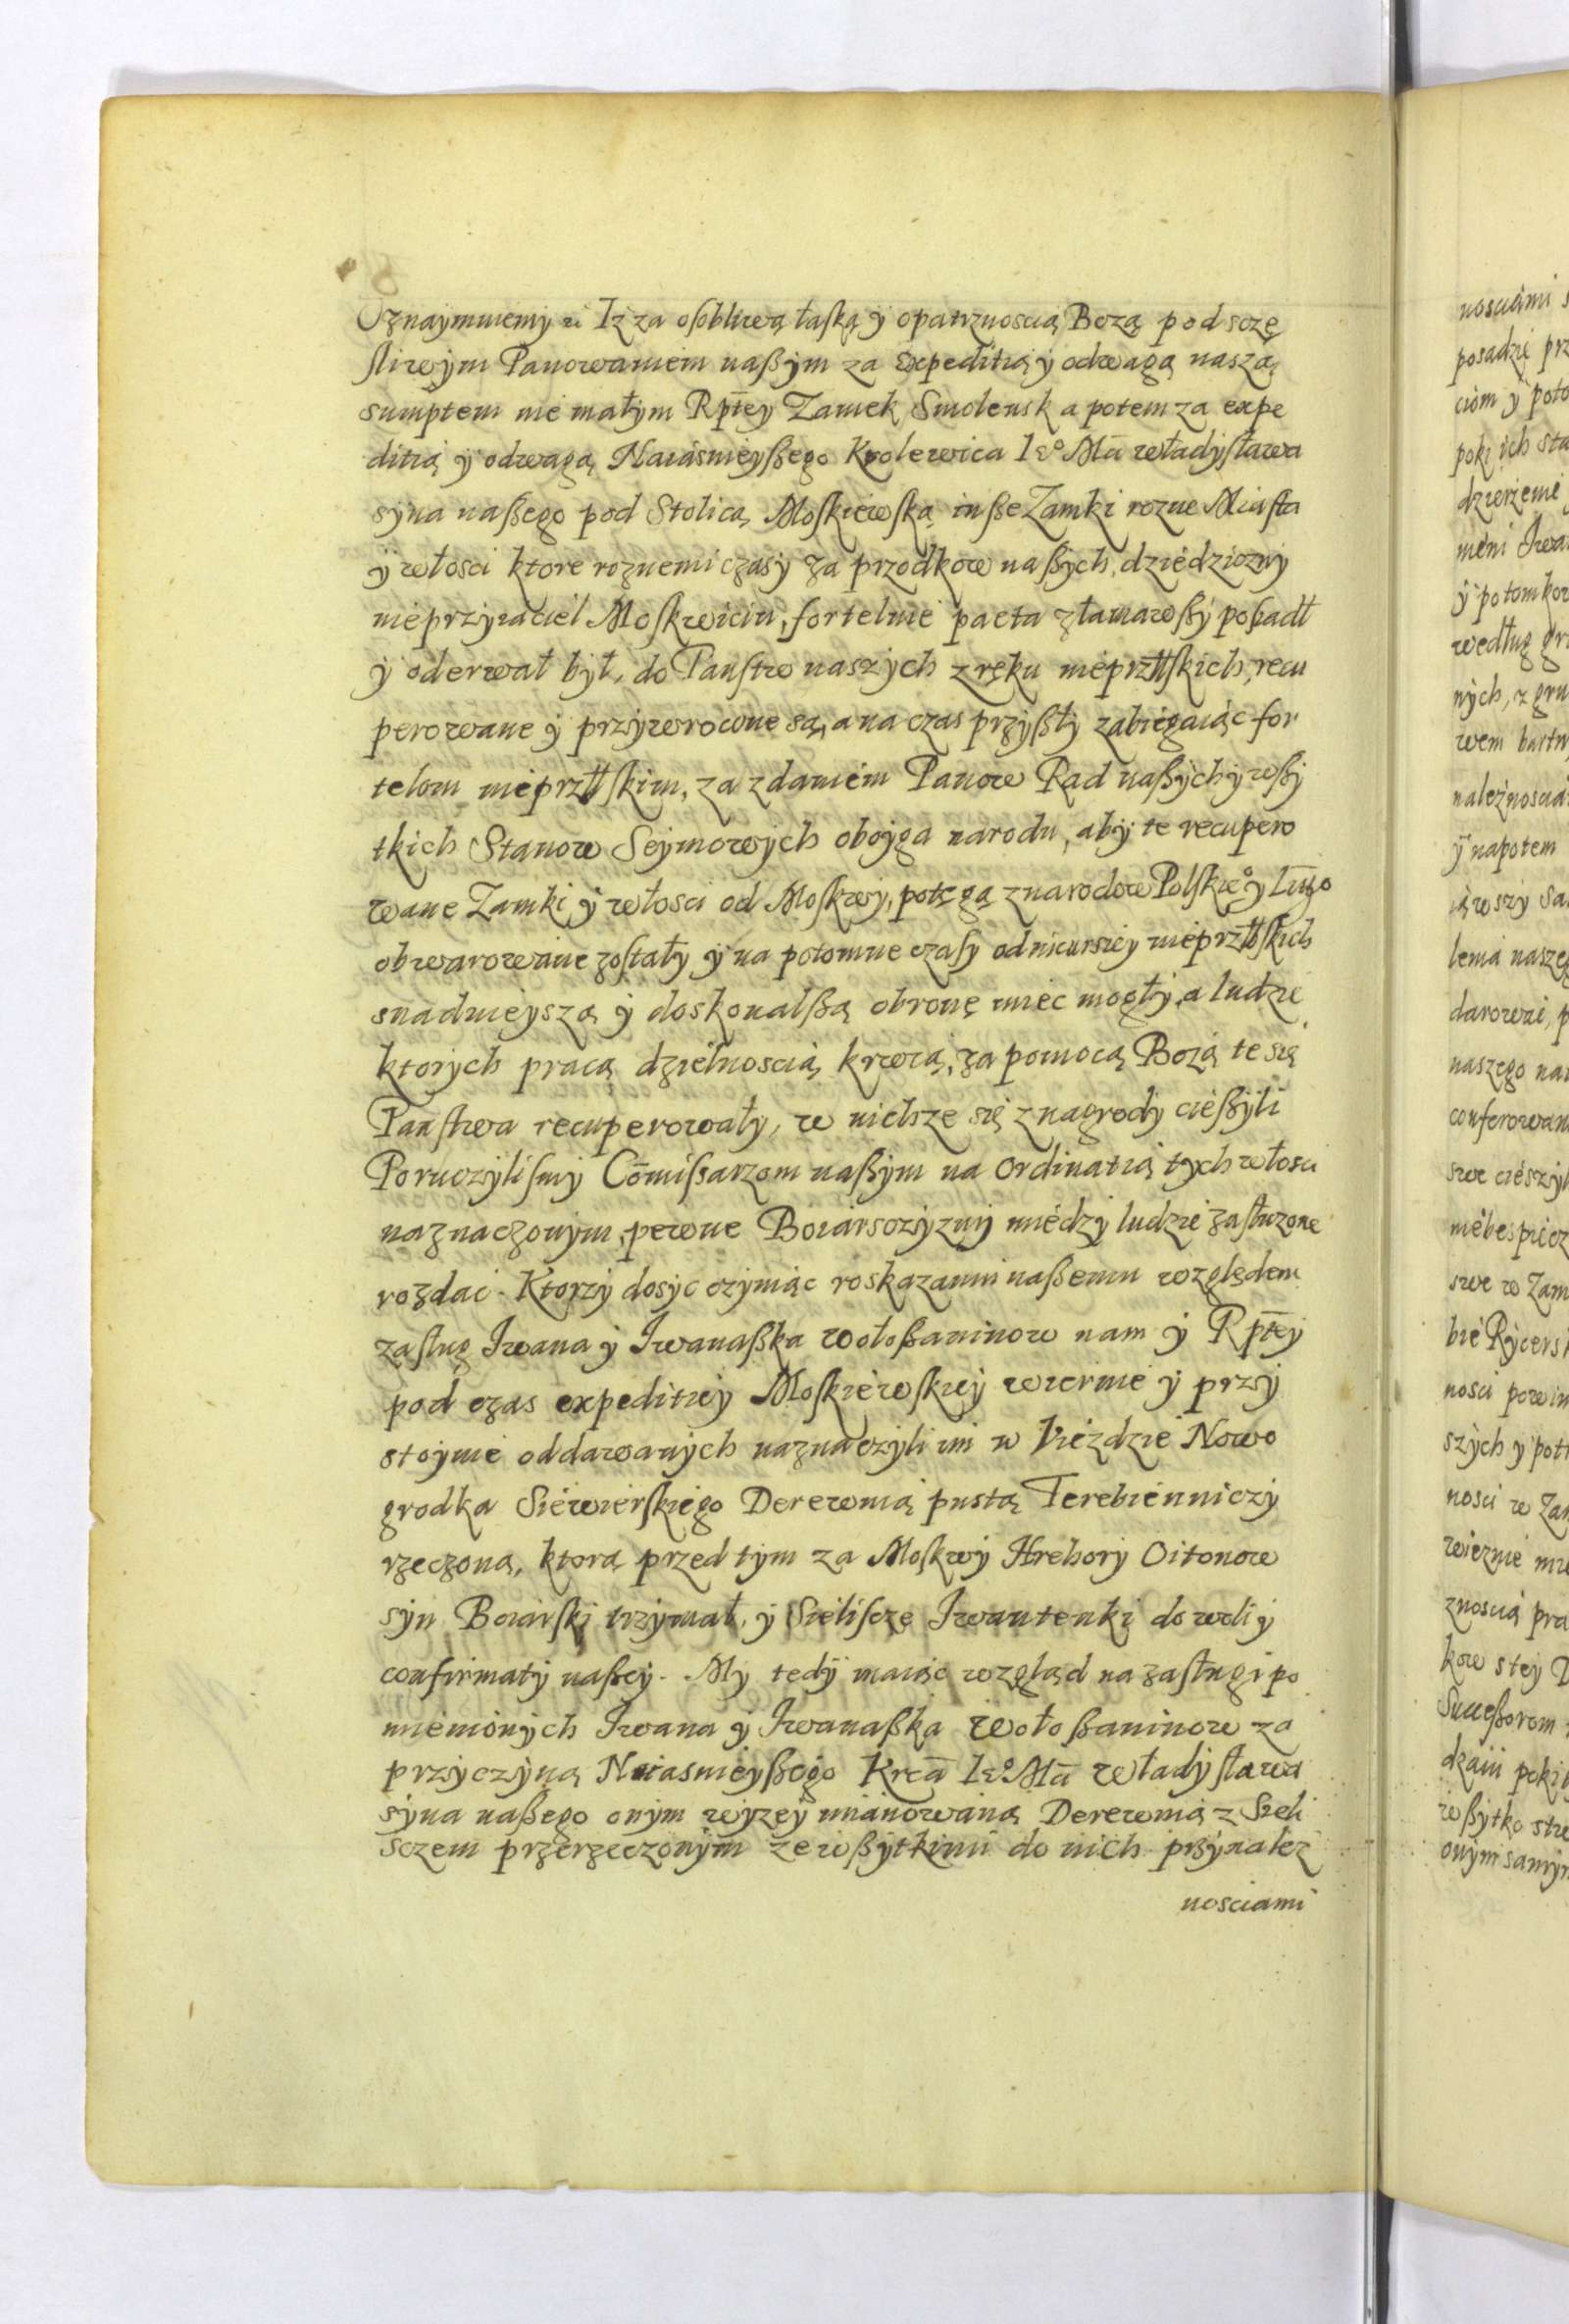 Oznaymuiemy ᵃ Iz za osobliwą łaską y opatrznoscią Bozą pod sczę
sliwym Panowaniem naßym za expeditią y odwagą naszą
sumptem nie małym Rptey Zamek Smolensk a potem za expe
ditią y odwagą Naiasnieyßego Krolewica Ie° Mci władysława
syna naßego pod Stolicą Moskiewską inße Zamki rozne Miasta
y włosci ktore roznemi czasy za przodkow naßych, dziedziczny
nieprzyiaciel Moskwicin, fortelnie pacta złamawßy posiadł
y oderwał był, do Panstw naszych z ręku nieprzłskich, recu
perowane y przywrocone są, a na czas przyßły zabiegaiąc for
telom nieprzłskim, za zdaniem Panow Rad naßych y wßy
tkich Stanow Seymowych oboyga narodu, aby te recupero
wane Zamki y włosci od Moskwy, potęgą z narodow Polskie° y Litgo
obwarowane zostały y na potomne czasy od nicursiey nieprzłskich
snadnieyszą y doskonalßą obronę miec mogły, a ludzie
ktorych pracą dzielnoscią krwią, za pomocą Bozą te się
Panstwa recuperowały, w nichze się z nagrody cießyli
Poruczylismy Comissarzom naßym na ordinatią tych włosci
naznaczonym, pewne Boiarsczyzny miedzy ludzie zasłuzone
rozdac. Ktorzy dosyc czyniąc roskazaniu naßemu względem
zasług Iwana y Iwanaßka wołoßaninow nam y Rptey
pod czas expeditiey Moskiewskiey wiernie y przy
stoynie oddawanych naznaczyli im w Vieździe Nowo
grodka Siewierskiego Derewnią pustą Terebienniczy
rzeczoną, ktorą przed tym za Moskwy Hrehory Oitonow
syn Boiarski trzymał, y Sieliscze Iwantenki do woli y
confirmaty naßey. My tedy maiąc wzgląd na zasługi po
mienionych Iwana y Iwanaßka Wołoßaninow za
przyczyną Naiasnieyßego Krca Ie° Mci Władysława
syna naßego onym wyzey mianowaną Derewnią z Sieli
sczem przerzeczonym ze wßytkimi do nich przynalez
nosciami